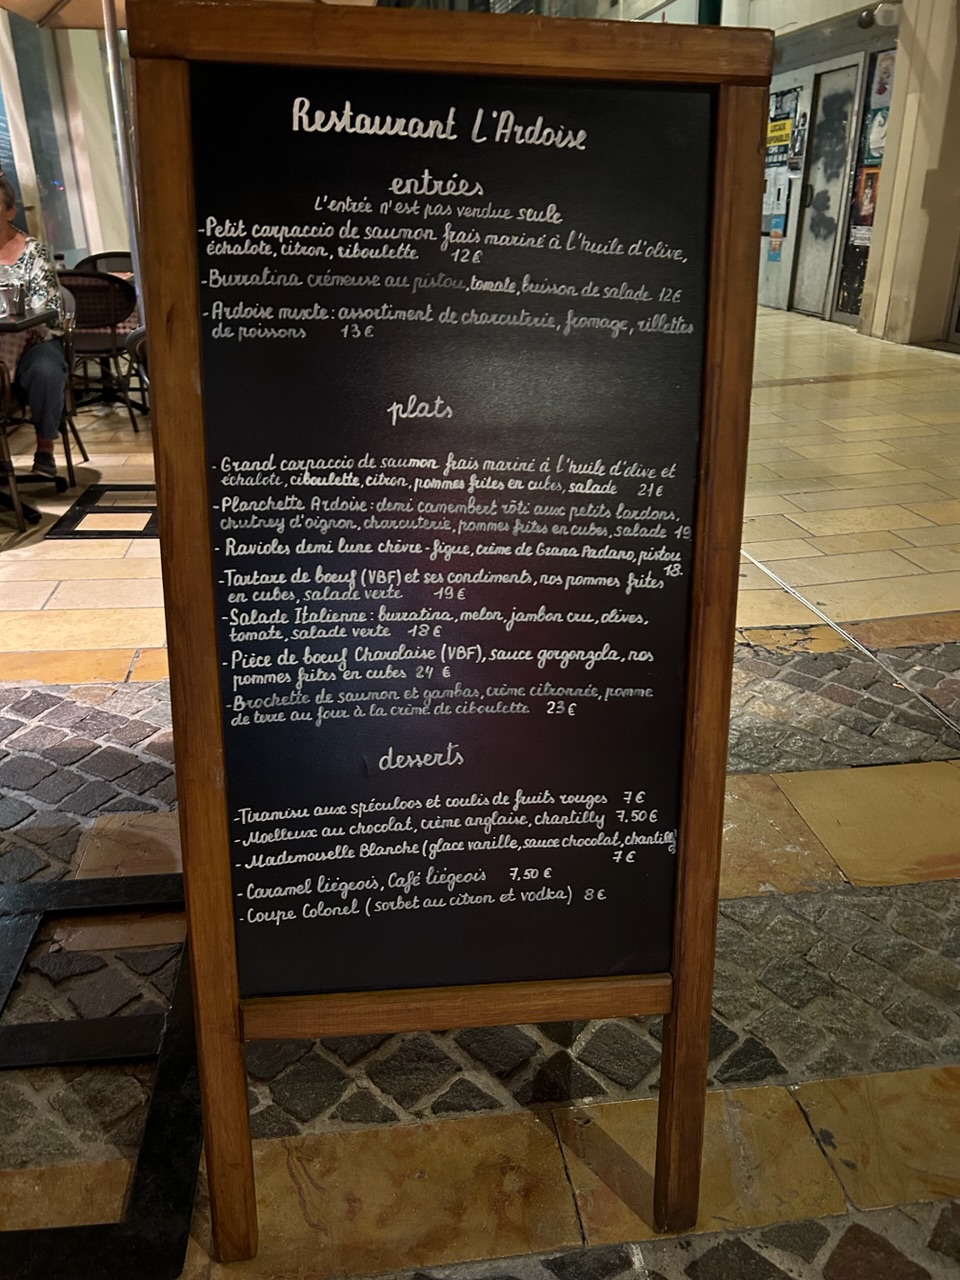 Restaurant L'Ardoise
entrées
L'entrée n'est pas vendue seule
-Petit carpaccio de saumon frais mariné à l'huile d'olive,
échalote, citron, ciboulette 12€
-Burratina crémeuse au pistou, tomate, buisson de salade 12€
-Ardoise mixte: assortiment de charcuterie, fromage, rillettes
de poissons 13€
plats
-Grand carpaccio de saumon frais mariné à l'huile d'olive et
échalote, ciboulette, citron, pommes frites en cubes, salade 21€
-Planchette Ardoise: demi camembert rôti aux petits lardons,
chutney d'oignon, charcuterie, pommes frites en cubes, salade 19
- Ravioles demi lune chèvre-figue, crème de Grana Padano, pistou
18.
-Tartare de boeuf (VBF) et ses condiments, nos pommes frites
en cubes, salade verte 19€
-Salade Italienne: burratina, melon, jambon cru, olives,
tomate, salade verte 18€
-Pièce de boeuf Charolaise (VBF), sauce gorgonzola, nos
pommes frites en cubes 24€
-Brochette de saumon et gambas, crème citronnée, pomme
de terre au four à la crème de ciboulette 23€
desserts
-Tiramisu aux spéculoos et coulis de fruits rouges 7€
-Moelleux au chocolat, crème anglaise, chantilly 7.50€
- Mademoiselle Blanche (glace vanille, sauce chocolat, chantilly)
7€
-Caramel liégeois, Café liégeois 7,50€
-Coupe Colonel (sorbet au citron et vodka) 8€